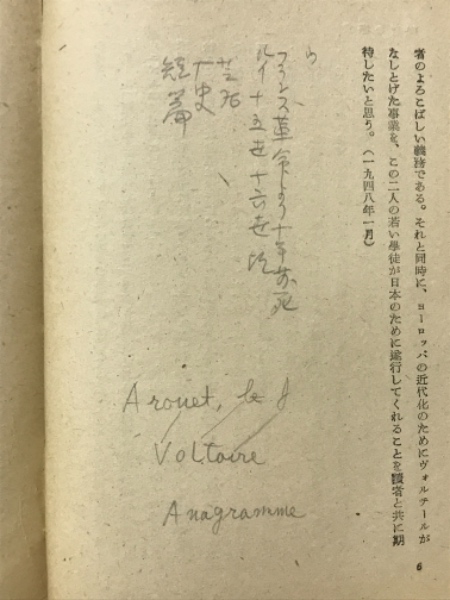 者のよろこばしい義務である。それと同時に、ヨーロッパの近代化のためにヴォルテールが
なしとげた事業を、この二人の若い學徒が日本のために遂行してくれることを讀者と共に期
待したいと思う。（一九四八年一月）
フランス革命より十年前死
ルイ十五世十六世
歴史
短篇
Arouet, le J
Voltaire
Anagramme
6